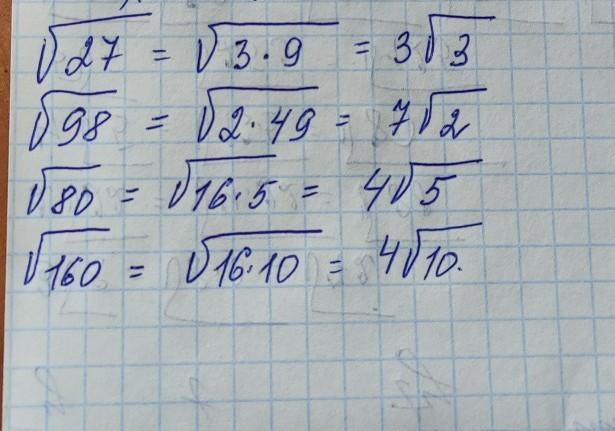 √27 = √3·9 = 3√3
√98 = √2·49 = 7√2
√80 = √16·5 = 4√5
√160 = √16·10 = 4√10.